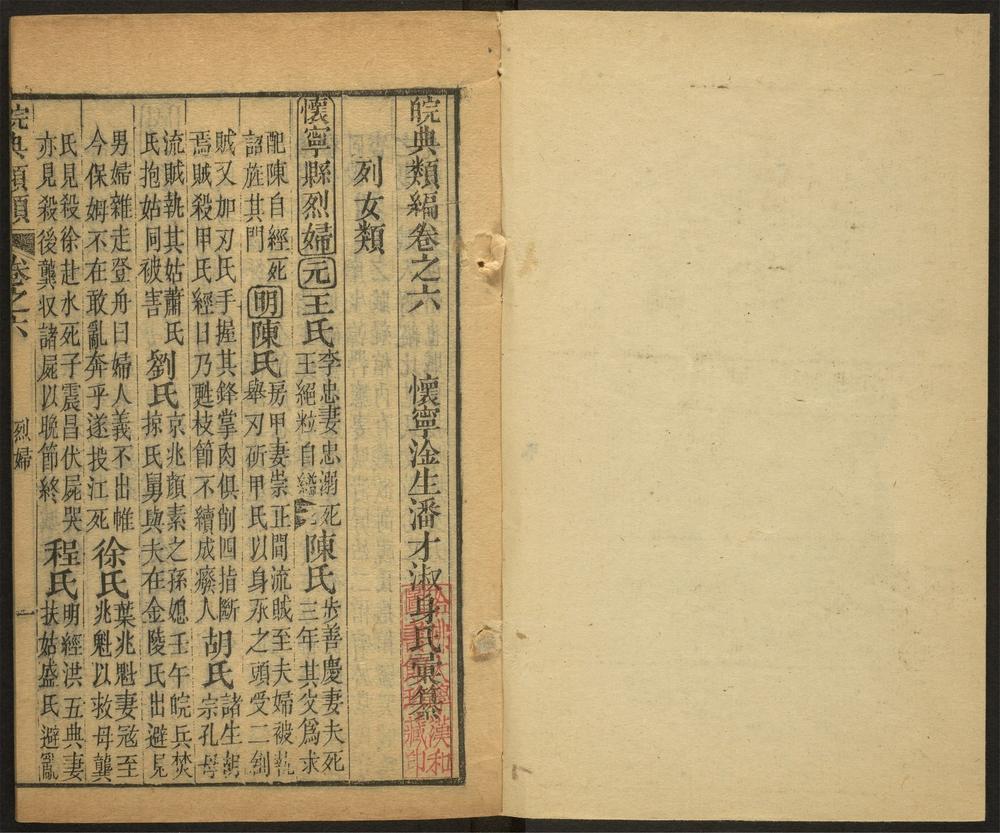 皖典類編卷之六
懷寧淦生潘才淑身氏彙纂
列女類
懷寧縣烈婦 元 王氏
李忠妻忠溺死
王絕粒自縊死
陳氏
步善慶妻夫死
三年其父爲求
配陳自經死
詔旌其門
明 陳氏
房甲妻崇正間流賊至夫婦被執
舉刃斫甲氏以身永之頭受二創
賊又加刃氏手握其鋒掌肉俱削四指斷
焉賊殺甲氏經日乃甦枝節不續成癈人
胡氏
諸生胡
宗孔母
流賊執其姑蕭氏
氏抱姑同被害
劉氏
京兆顏素之孫媳壬午皖兵焚
掠氏舅與夫在金陵氏出避見
男婦雜走登舟曰婦人義不出帷
今保姆不在敢亂奔乎遂投江死
徐氏
葉兆魁妻冦至
兆魁以救母龔
氏見殺徐赴水死子震昌伏屍哭
亦見殺後龔収諸屍以晚節終
程氏
明經洪五典妻
扶姑盛氏避亂
皖典類編
卷之六
烈婦
一
哈佛大學漢和
圖書館珍藏印